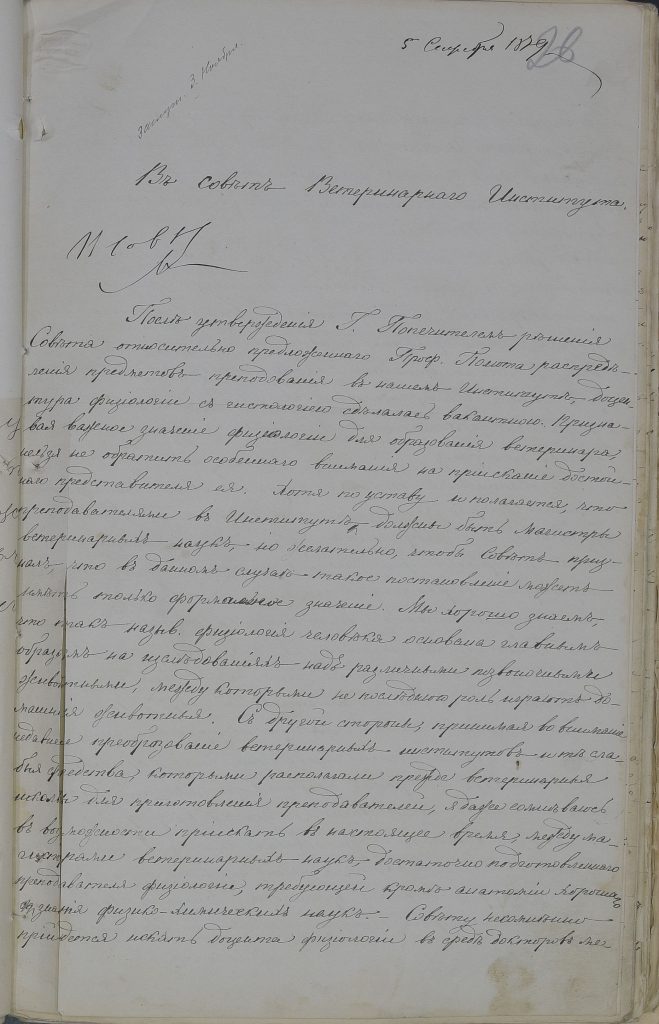 5 Сентября 1879
28
Въ совѣтъ Ветеринарнаго Института.
Послѣ утвержденія Г. Попечителемъ рѣшенія
Совѣта относительно предложеннаго Проф. распредѣ-
ленія предметовъ преподаванія въ нашемъ Институтѣ, доцен
тура физіологіи съ гистологіею сдѣлалась вакантною. Призна-
вая важное значеніе физіологіи для образованія ветеринара
нельзя не обратить особеннаго вниманія на пріисканіе достой-
наго представителя ея. Хотя по уставу и полагается, что
преподавателями въ Институтѣ должны быть Магистры
ветеринарныхъ наукъ, но желательно, чтобъ Совѣтъ приз-
налъ, что въ данномъ случаѣ такое постановленіе можетъ
имѣть только формальное значеніе. Мы хорошо знаемъ,
что такъ назыв. физіологія человѣка основана главнымъ
образомъ на изслѣдованіяхъ надъ различными позвоночными
животными, между которыми не послѣднюю роль играютъ до-
машнія животныя. Съ другой стороны, принимая во вниманіе
недавнее преобразованіе ветеринарныхъ институтовъ и тѣ сла-
быя средства, которыми располагали прежде ветеринарныя
школы для приготовленія преподавателей, я даже сомнѣваюсь
въ возможности пріискать въ настоящее время, между ма-
гистрами ветеринарныхъ наукъ, достаточно подготовленнаго
преподавателя физіологіи, требующей кромѣ анатоміи хорошаго
знанія физико-химическихъ наукъ. – Совѣту неминуемо
прійдется искать доцента физіологіи въ средѣ докторовъ ме-